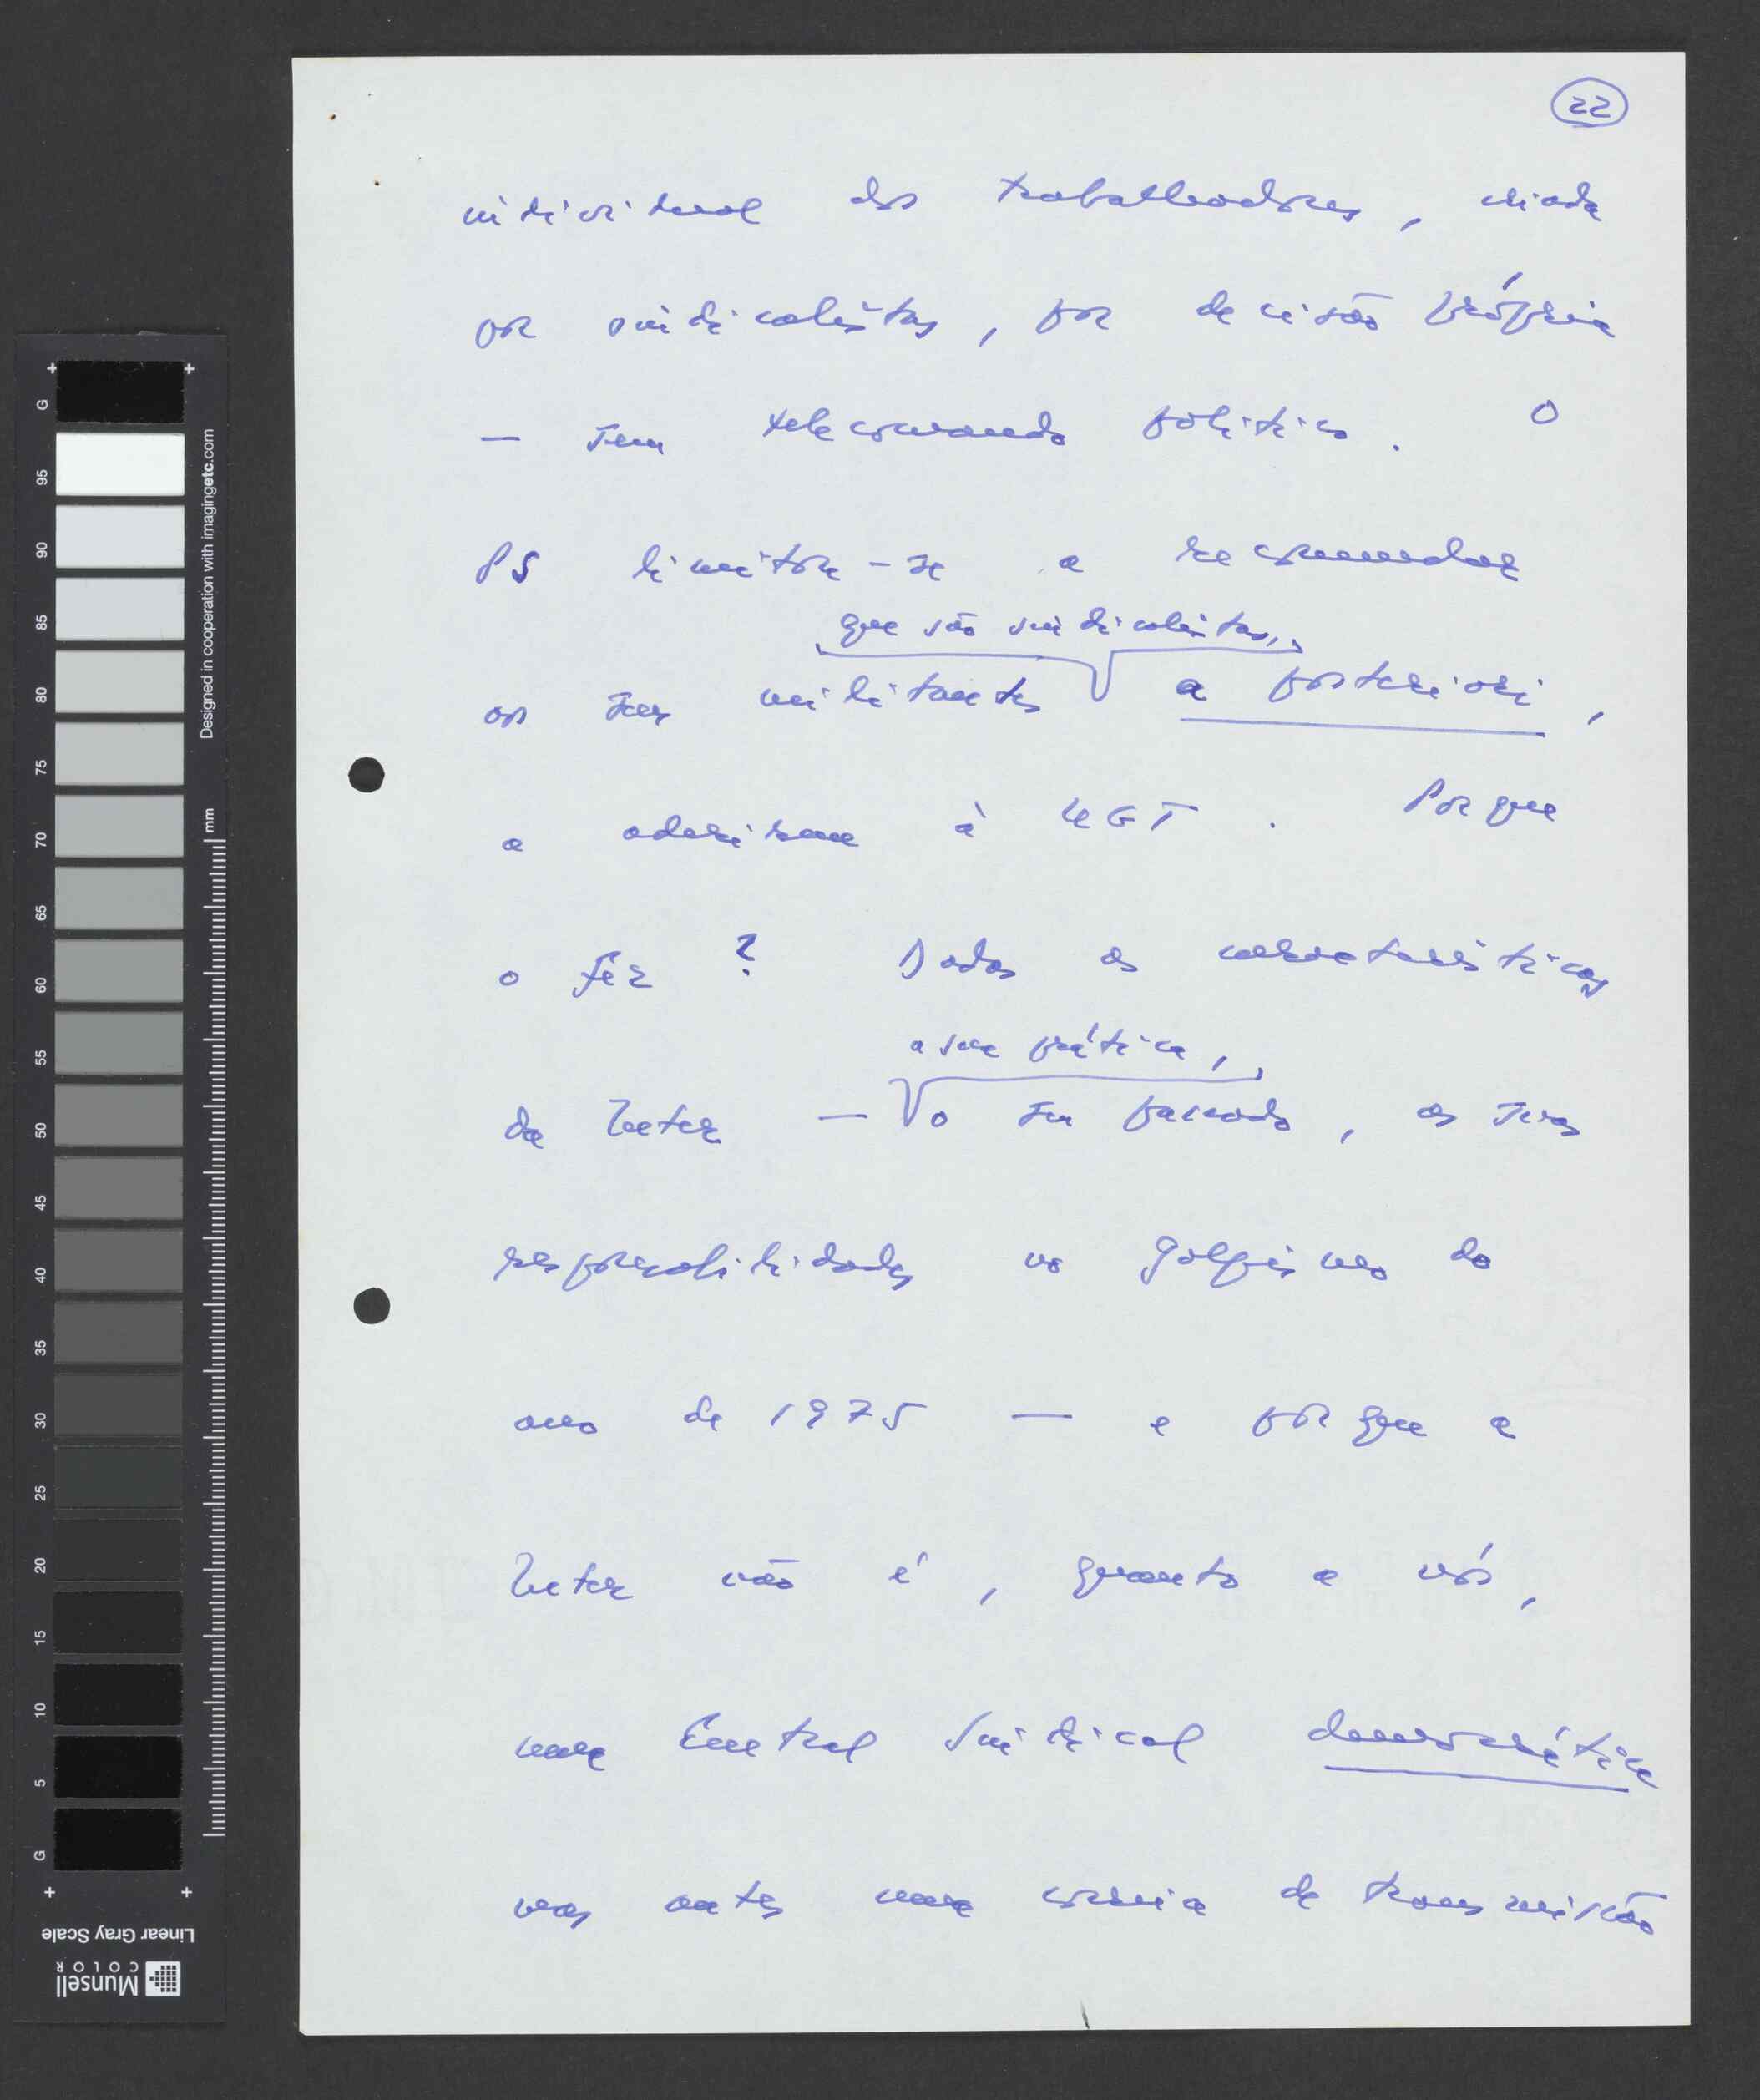 22
individual dos trabalhadores, criada
por sindicalistas, por decisão própria
— sem telecomando político. O
PS limitou-se a recomendar
que são sindicalistas,
os seus militantes a posteriori,
a aderirem à UGT. Porque
o fez? Dadas as características
a sua prática,
da Inter — o seu passado, as suas
responsabilidades no golpismo do
ano de 1975 — e porque a
Inter não é, quanto a nós,
uma Central Sindical democrática
mas antes uma correia de transmissão
Designed in cooperation with imagingetc.com
mm
G
95
90
85
80
75
70
65
60
55
50
45
40
35
30
25
20
15
10
5
G
Linear Gray Scale
Munsell
COLOR